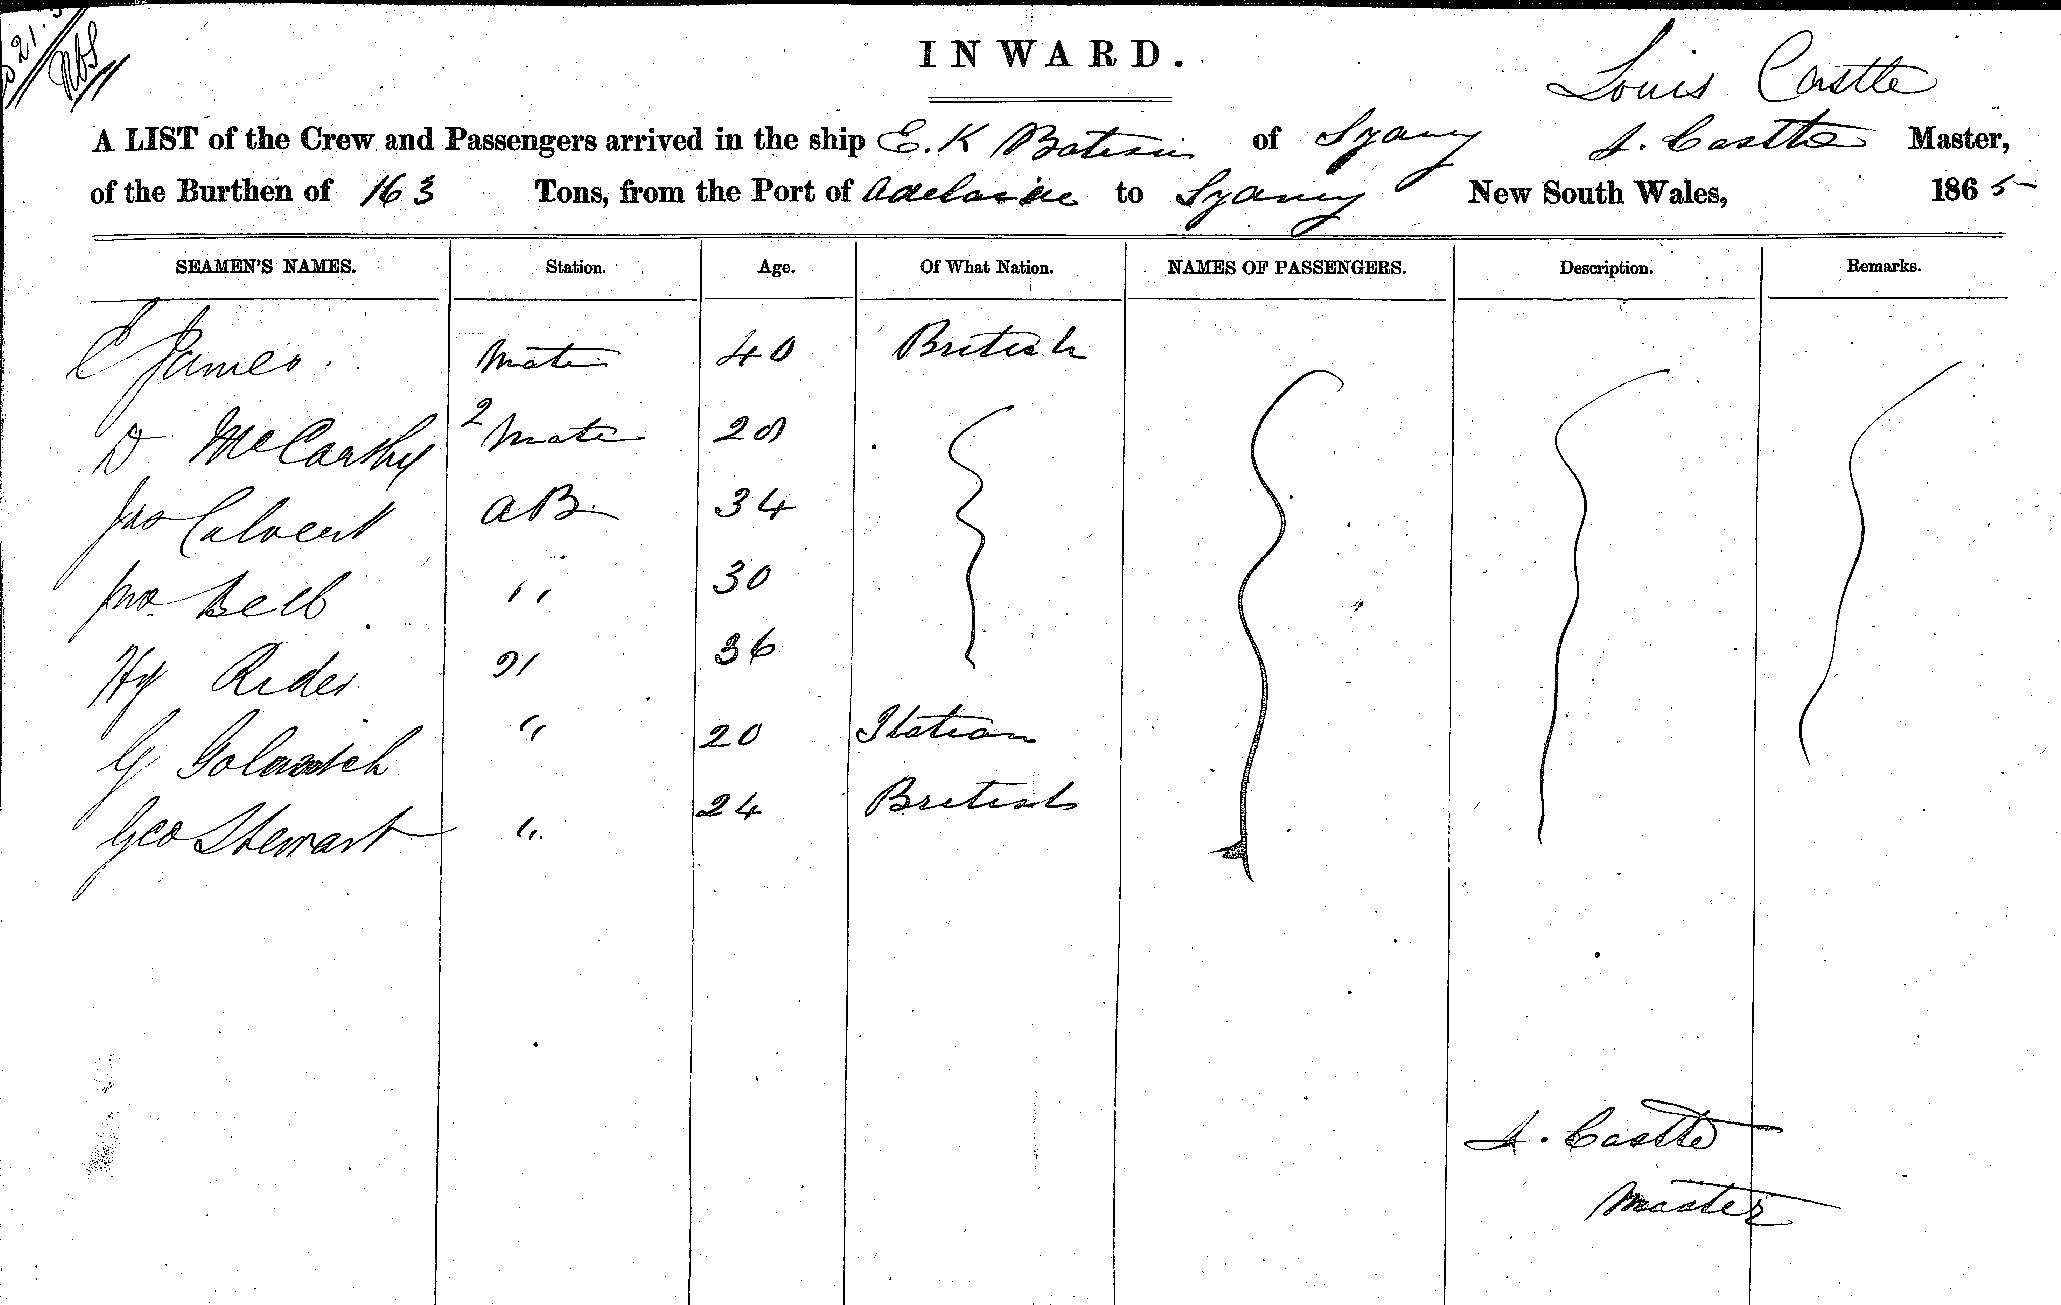 21.
INWARD.
Louis Castle
A LIST of the Crew and Passengers arrived in the ship E. K Bateson of Sydney L. Castle Master,
of the Burthen of 163 Tons, from the Port of Adelaide to Sydney New South Wales, 1865
SEAMEN'S NAMES. Station. Age. Of What Nation. NAMES OF PASSENGERS. Description. Remarks.
C James. Mate 40 British
D McCarthy 2 Mate 28
Jas Calvert AB. 34
Jno Bell " 30
Hy Rider " 36
G " 20 Italian
Geo Stewart " 24 British
L. Castle
Master